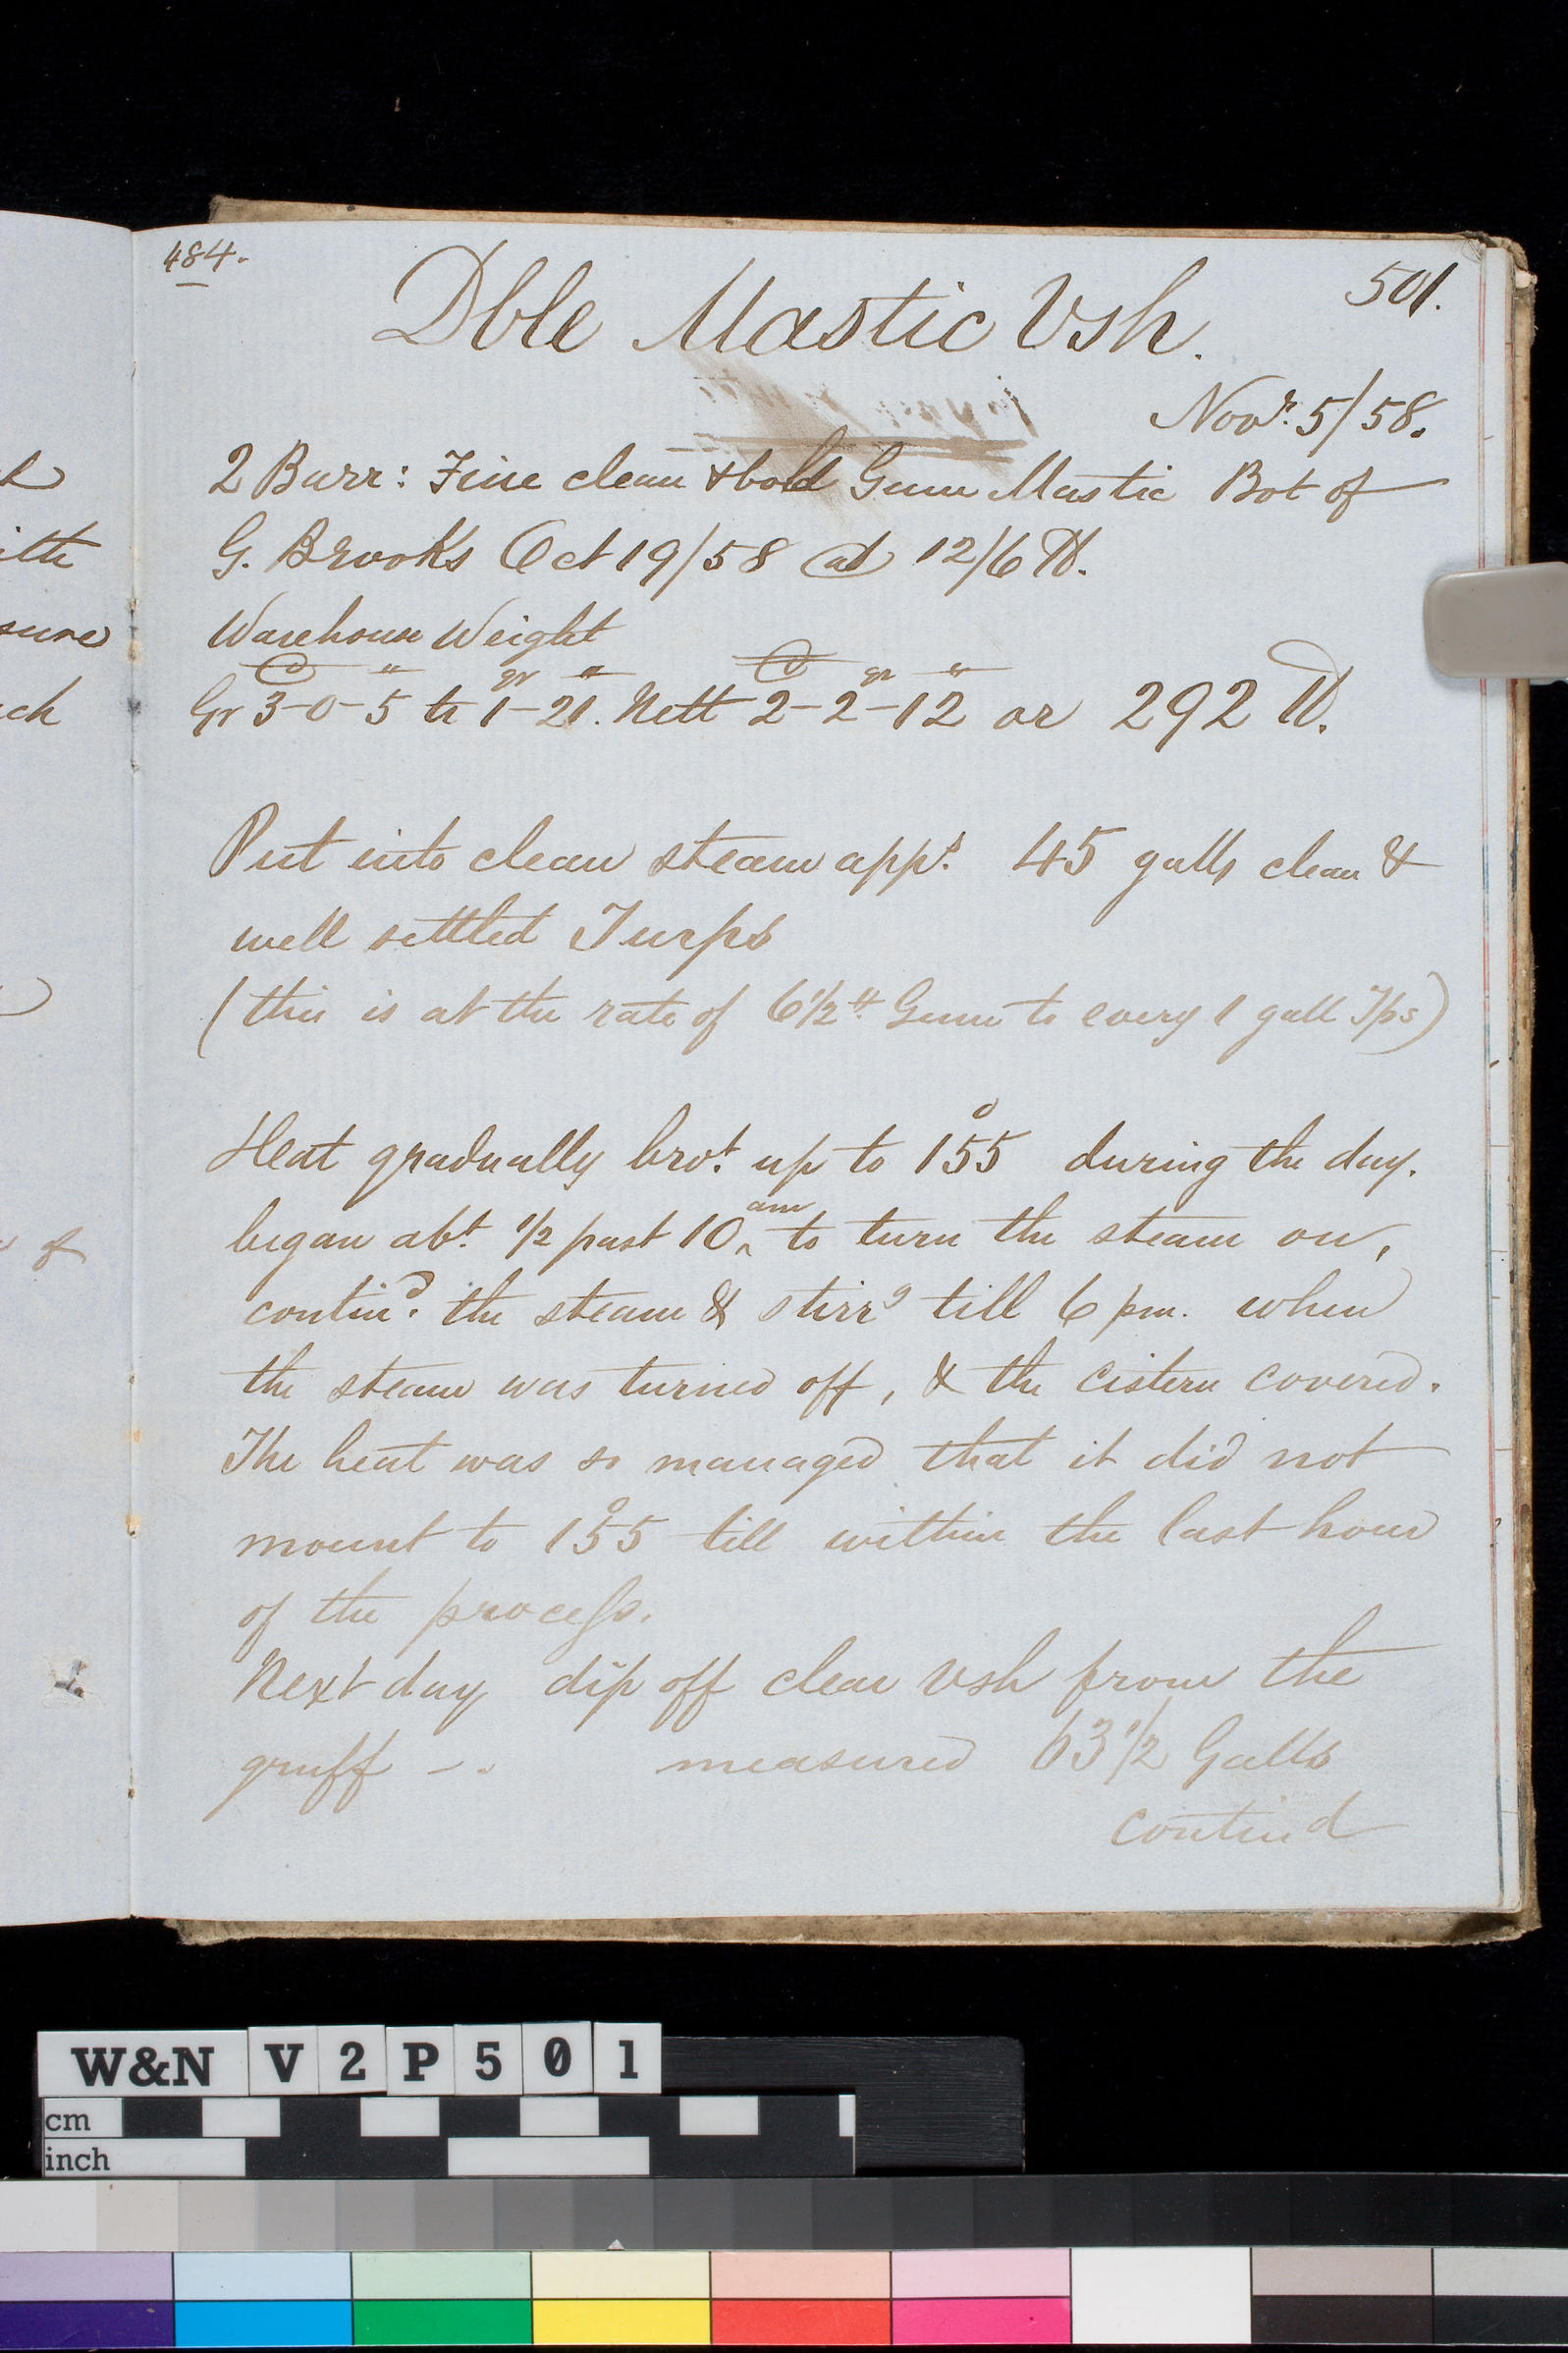 484.
501.
Dble Mastic Vsh.
Novr. 5/58.
2 Barr: Fine clean & bold Gum Mastic Bot of
G. Brooks Oct 19/58 @ 12/6 lb.
Warehouse Weight
C " qr " C qr "
Gr 3-0-5 tr 1-21. Nett 2-2-12 or 292 lb.
Put into clean steam apps. 45 galls clean &
well settled Turps
(this is at the rate of 6 1/2 # Gum to every 1 gall Tps)
Heat gradually brot. up to 155° during the day.
began abt. 1/2 past 10 am to turn the steam on,
contind. the steam & stirrg till 6 pm. when
the steam was turned off, & the cistern covered.
The heat was so managed that it did not
mount to 155° till within the last hour
of the process.
Next day dip off clear Vsh from the
gruff - . measured 63 1/2 Galls
contind
d
itte
sure
ch
of
W&N V2P501
cm
inch